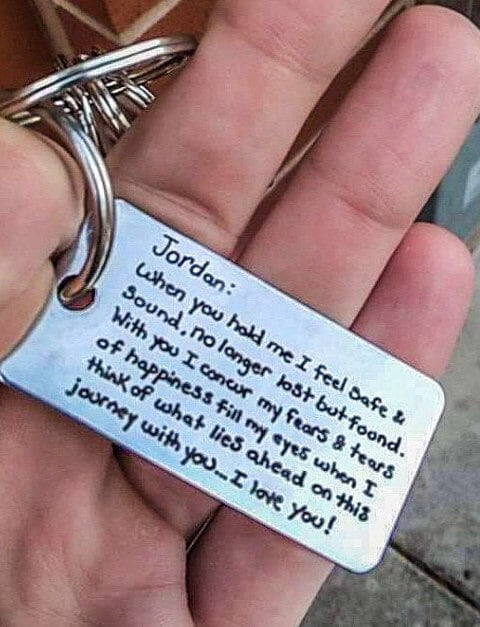 Jordan:
When you hold me I feel Safe &
Sound, no longer lost but found.
With you I concur my fears & tears
of happiness fill my eyes when I
think of what lies ahead on this
journey with you... I love you!